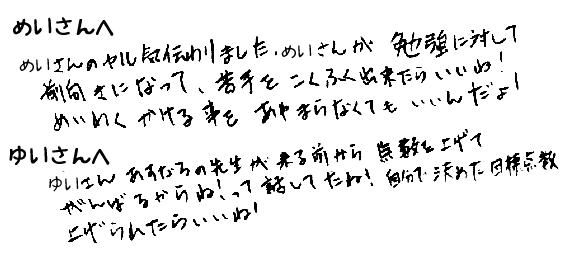 めいさんへ
めいさんのヤル気伝わりました。めいさんが 勉強に対して
前向きになって、苦手を こくふく出来たらいいね!
めいわく かける事を あやまらなくても いいんだよ!
ゆいさんへ
ゆいさん あすなろの先生が 来る前から 点数を上げて
がんばるからね!って話してたね!自分で決めた目標点数
上げられたらいいね!